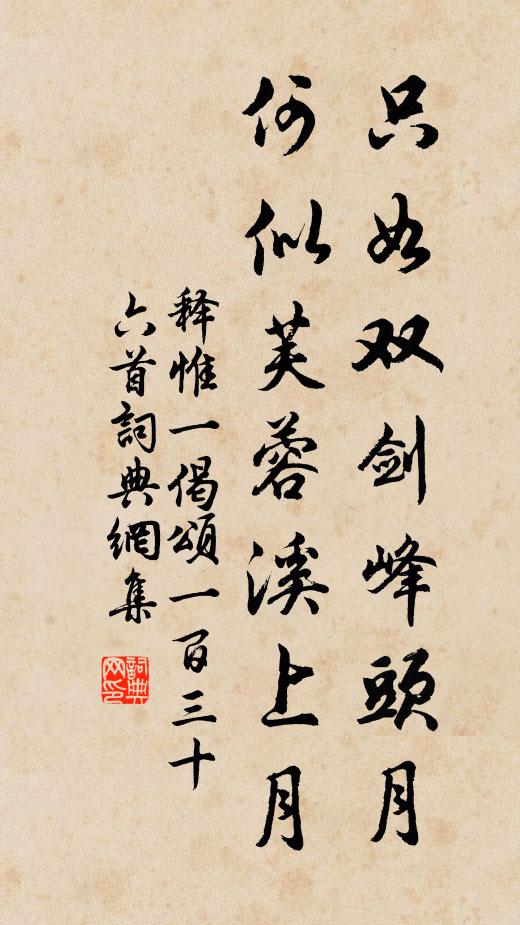 只如双剑峰頭月
何似芙蓉溪上月
释惟一偈頌一百三十
六首詞典網集
詞典
网印